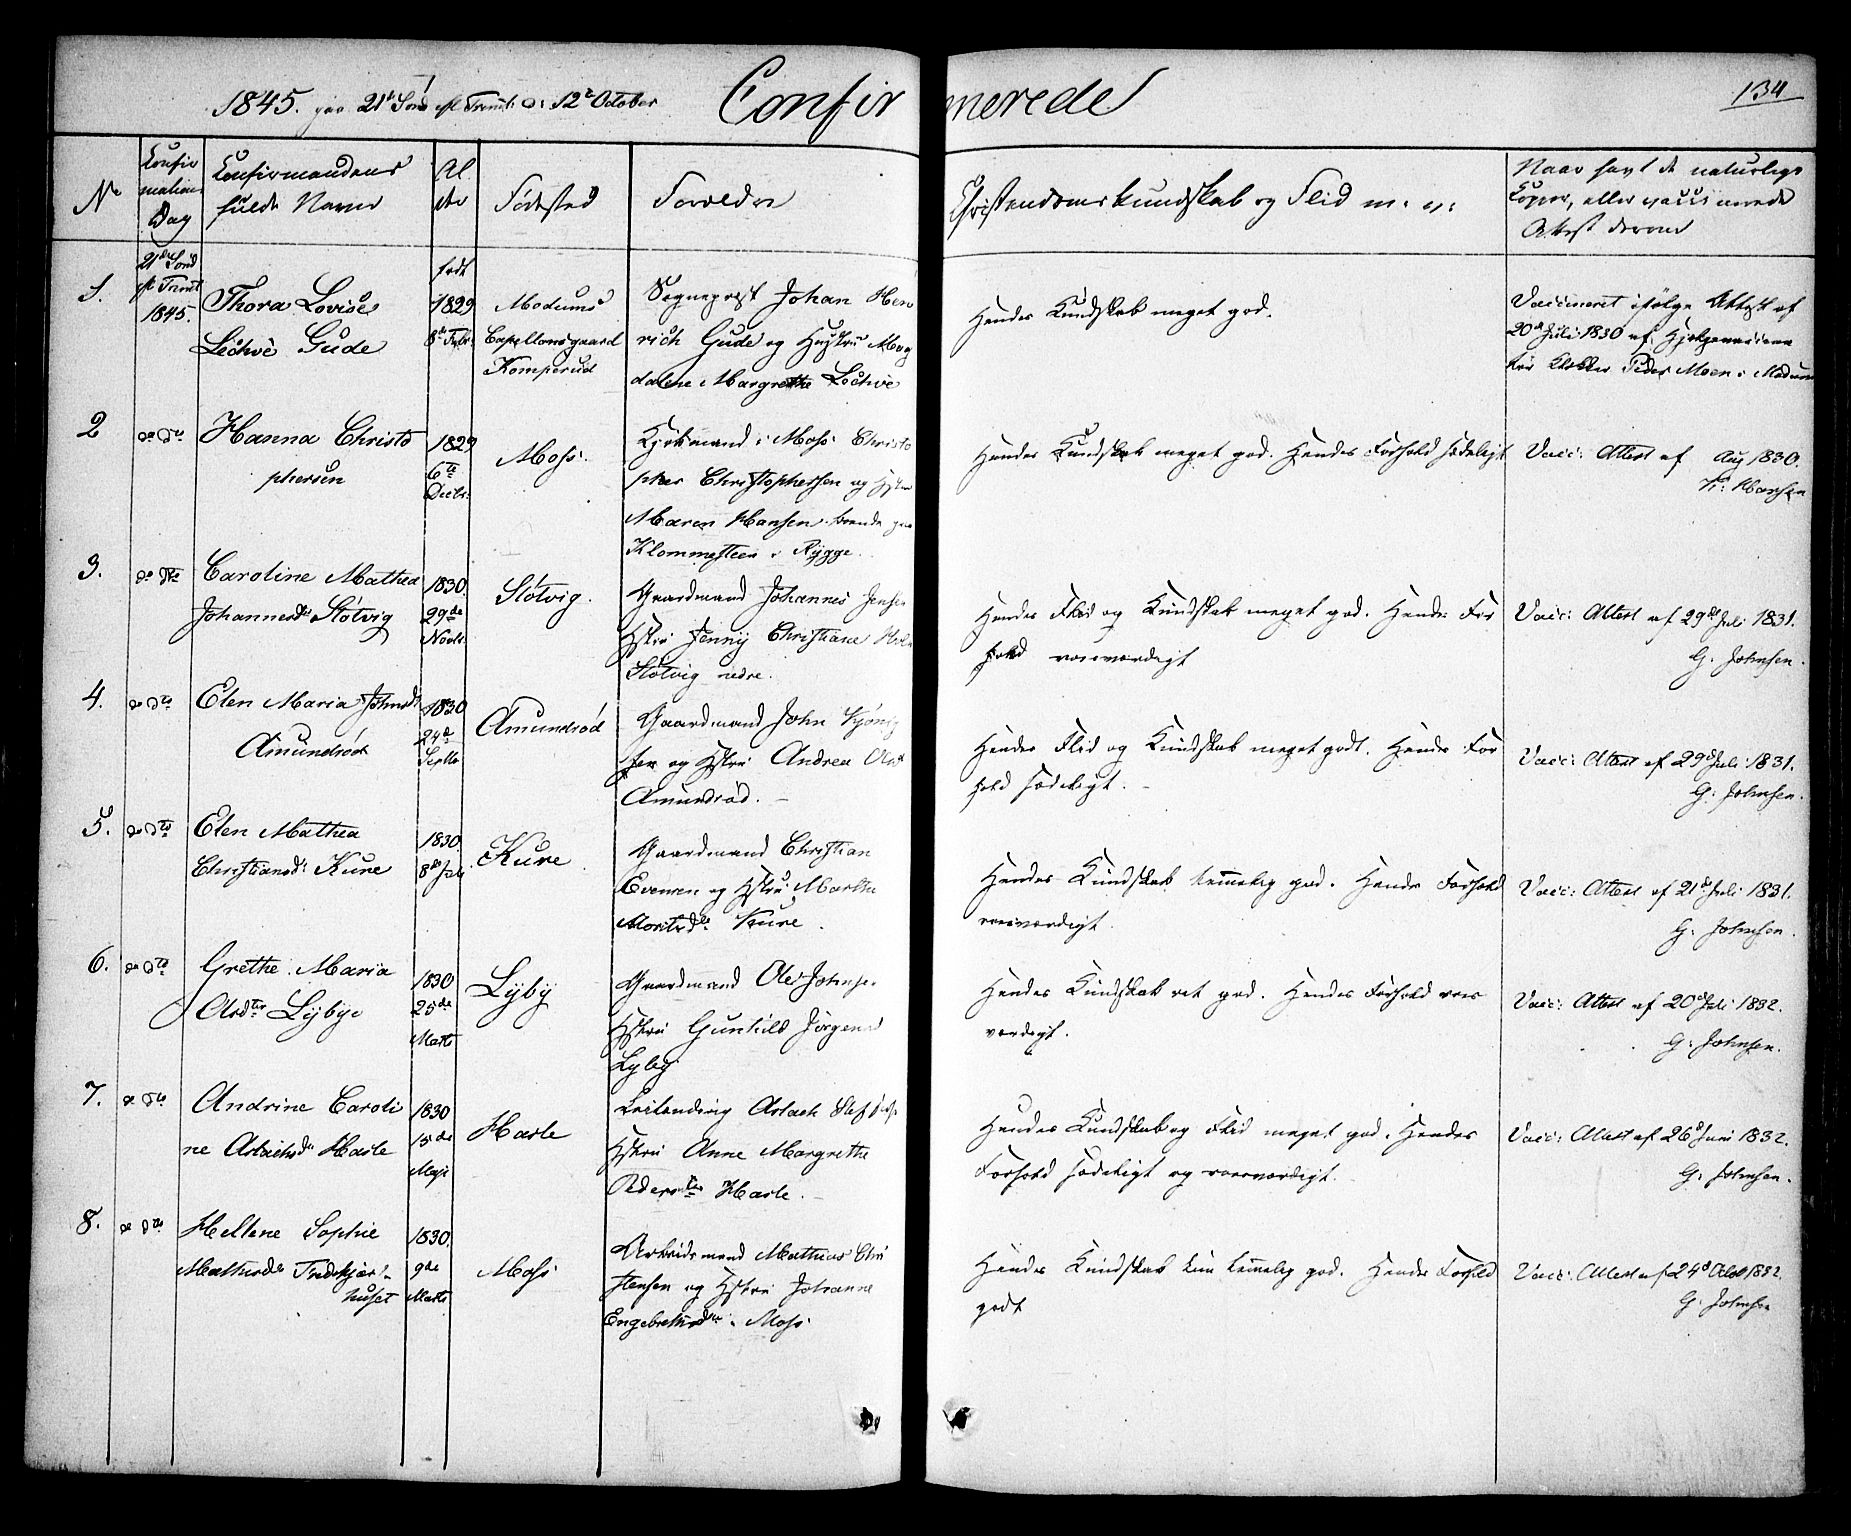 1845. paa 21de Sønd. eft. Trinit: d: 12te October Confirmerede 134
No
Konfirmations Dag
Konfirmandens fulde Navn
Alder
Fødested
Forældre
Christendomskundskab og Flid m. v:
Naar havt de naturlige
Kopper, eller vaccinerede
Attest derom
1. 21de Sønd eft Trinit 1845.
Thora Lovise
Lechve Gude
født 1829 8de Febr:
Modums
Capellansgaard
Komperud
Sognepræst Johan Hen
rich Gude og Hustru Mag
dalene Margrethe Lechve
Hendes Kundskab meget god.
Vaccineret ifølge Attest af
20de Juli 1830 af
Kirkesanger Peder Moen i Modum
2 do Do
Hanna Christo
phersen
1829 6te Decbr:
Moss.
i Moss Christo
pher Christophersen og Hstru
Maren Hansen boende paa
Klommesteen i Rygge.
Hendes Kundskab meget god. Hendes Forhold sædeligt
Vacc: Attest af Aug 1830.
Hansen
3. do Do
Caroline Mathea
Johannesdtr Støtvig
1830. 29de Novbr.
Støtvig.
Gaardmand Johannes Jensen
Hstru Jenny Christiane
Støtvig nedre.
Hendes Flid og Kundskab meget god. Hendes For
hold roesværdigt
Vacc: Attest af 29de Juli 1831.
G. Johnsen.
4. do Do
Elen Maria Johnsdt
Amundrød
1830 24de Septbr
Amundrød
Gaardmand John
sen og Hstru Andrea Olsd
Amundrød. —
Hendes Flid og Kundskab meget godt. Hendes For
hold sædeligt. —
Vacc: Attest af 29de Juli 1831.
G: Johnsen.
5. do Do
Elen Mathea
Christiansd: Kure
1830. 8de Juli
Kure
Gaardmand Christian
Evensen og Hstru Marthe
Moritsdtr Kure.
Hendes Kundskab temmelig god. Hendes Forhold
roesværdigt.
Vacc: Attest af 21de Juli 1831.
G: Johnsen.
6. do Do
Grethe Maria
Olsdtr Lyby
1830 25de Marts
Lyby
Gaardmand Ole Johnsen
Hstru Gunhild Jørgensd
Lyby
Hendes Kundskab ret god. Hendes Forhold roes
værdigt.
Vacc: Attest af 20de Juli 1832.
G: Johnsen.
7. do Do
Andrine Caroli
ne Aslachsdr Harle
1830 15de Maji
Harle
Leilænding Aslach
Hstru Anne Margrethe
Pedersdtr Harle. —
Hendes Kundskab og Flid meget god. Hendes
Forhold sædeligt og roesværdigt.
Vacc: Attest af 26de Juni 1832.
G. Johnsen.
8. do Do
Hellene Sophie
Mathisdtr
huset
1830. 9de Marts
Moss
Arbeidsmand Mathias Chri
stensen og Hstru Johanne
Engebrethsdtr. Moss.
Hendes Kundskab kun temmelig god. Hendes Forhold
godt
Vacc: Attest af 24de Octob 1832.
G. Johnsen